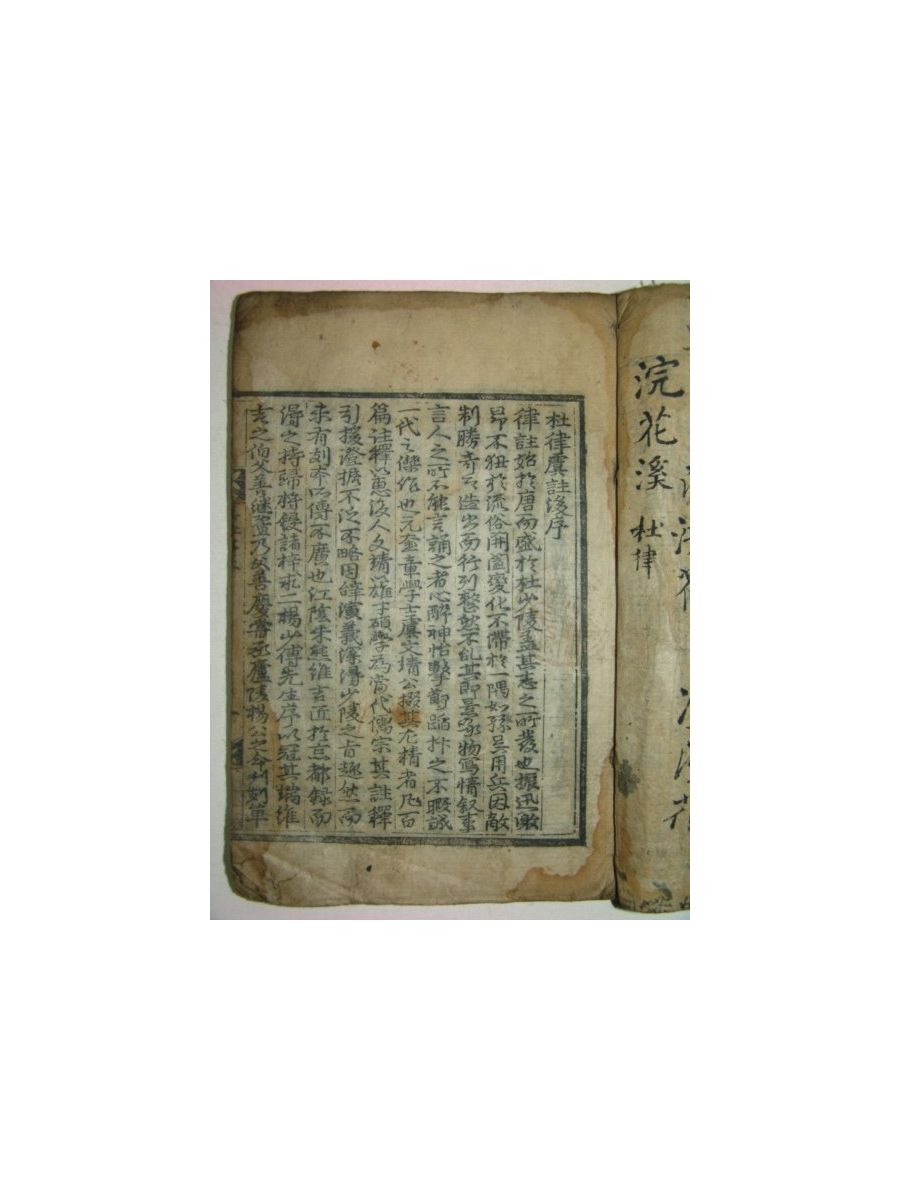 浣花溪 杜律
杜律虞註後序
律註始於唐而盛於杜少陵盖其志之所發也振迅激
昂不狃於流俗開闔變化不滯於一隅如孫吳用兵因敵
制勝奇正造出而行列整然不乱其即景咏物寫情叙事
言人之所不能言誦之者心醉神怡擊節蹈抃之不暇誠
一代之傑作也元奎章學士虞文靖公掇其尤精者凡百
篇註釋以惠後人文靖以雄才碩學為當代儒宗其註釋
引援證據不泛不略因辭演義深得少陵之旨趣然而
未有刻本所傳不廣也江陰朱熊維吉近於京都録而
得之持歸將鋟諸梓求二楊少傅先生序以冠其端維
吉之伯父善継盖乃父善慶